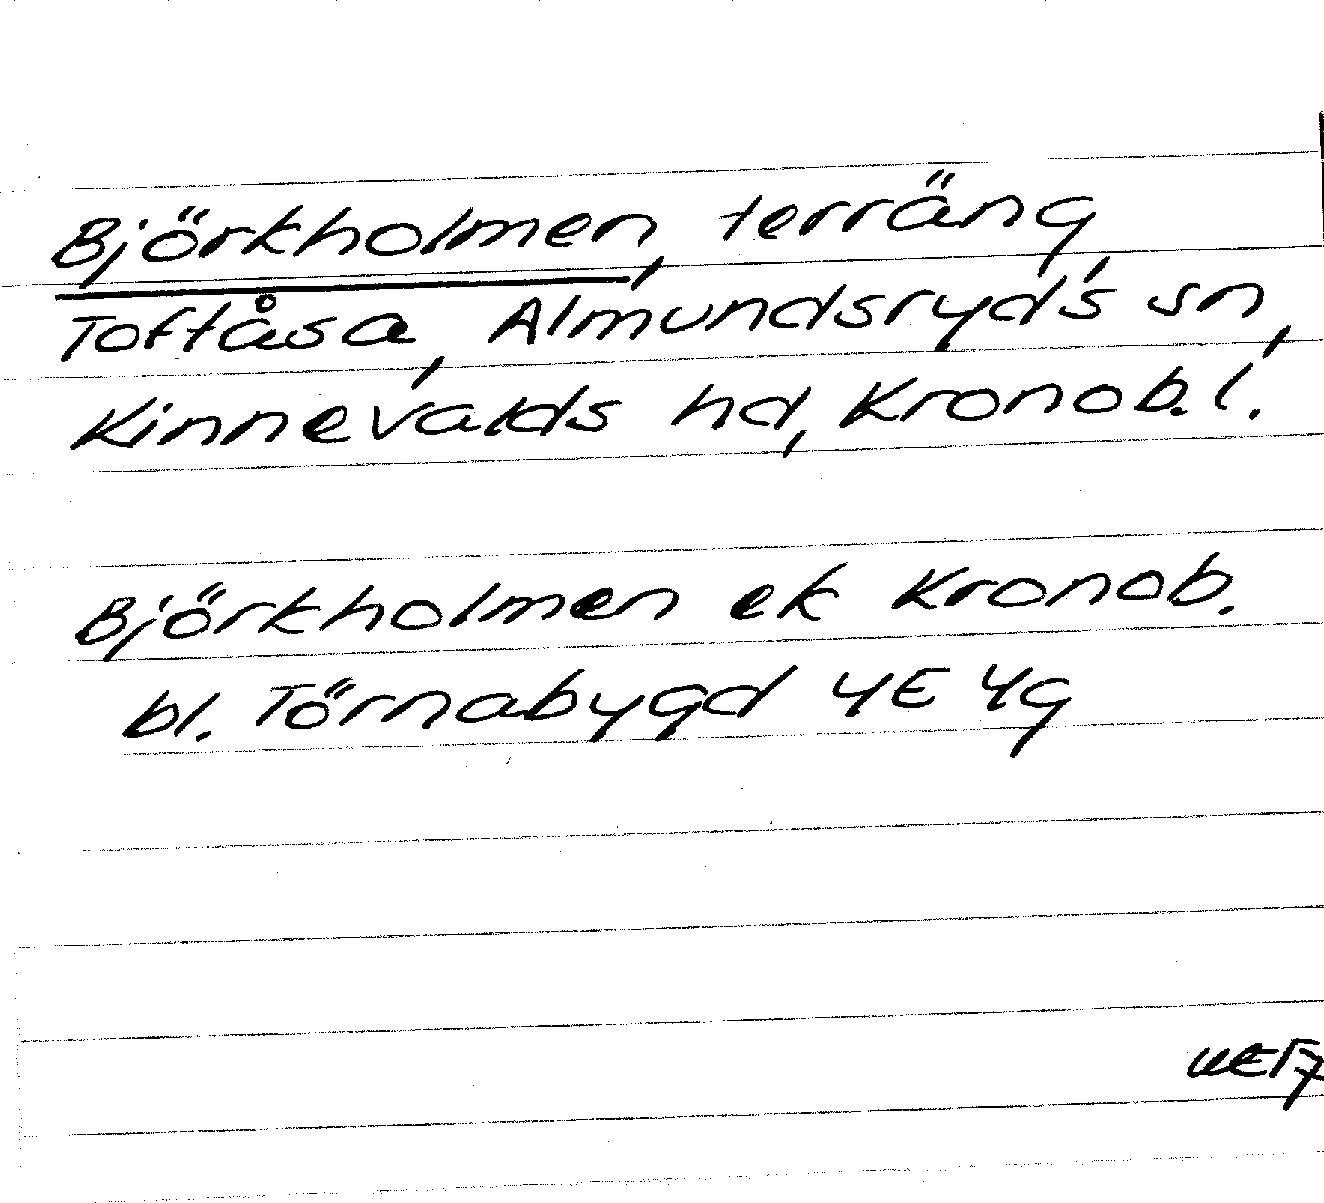 Björkholmen, terräng
Toftåsa, Almundsryds sn,
Kinnevalds hd, Kronob. l.
Björkholmen ek Kronob.
bl. Törnabygd 4E 4g